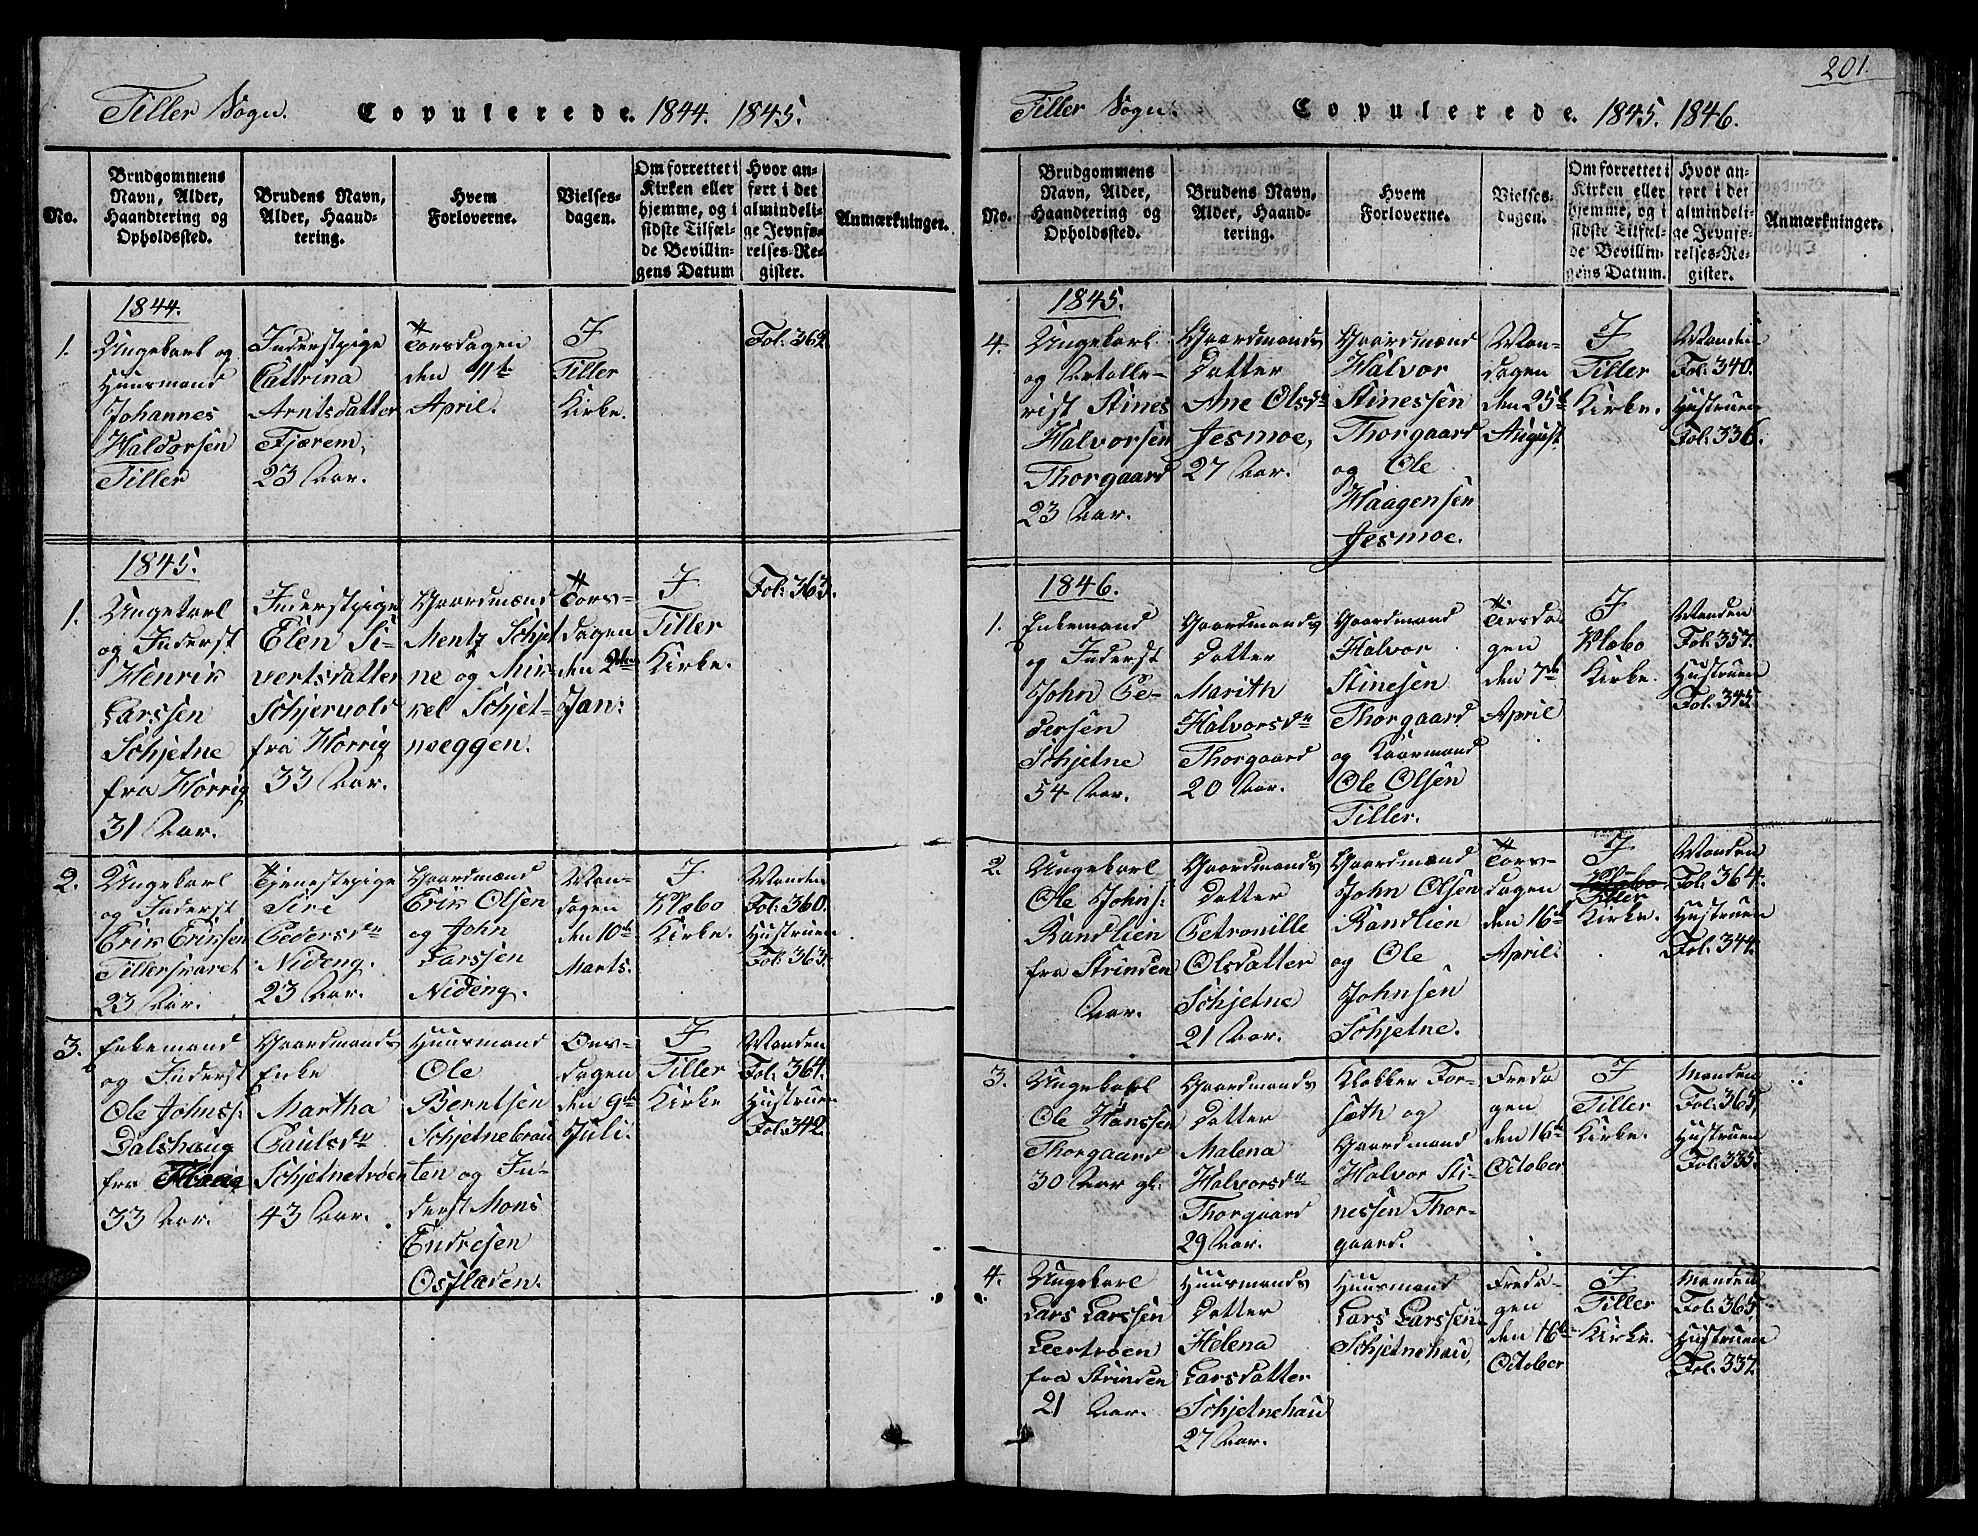 Tiller Sogn. Copulerede. 1844. 1845.
No.
Brudgommens
Navn, Alder,
Haandtering og
Opholdssted.
Brudens Navn,
Alder, Haand-
tering.
Hvem
Forloverne.
Vielses-
dagen.
Om forrettet i
Kirken eller
hjemme, og i
sidste Tilfæl-
de Bevillin-
gens Datum
Hvor an-
ført i det
almindeli-
ge Jevnfø-
relses-Re-
gister.
Anmærkninger.
1844.
1.
Ungekarl og
Huusmand
Johannes
Haldorsen
Tiller
Inderstpige
Cattrina
Arntsdatter
Tjærem,
23 Aar.
Torsdagen
den 11te
April.
I
Tiller
Kirke.
Fol: 364.
1845.
1.
Ungekarl
og Inderst
Henrik
Larssen
Schjetne
fra Horrig
31 Aar.
Inderstpige
Elen Si-
vertsdatter
Schjervols
fra Horrig
33 Aar.
Gaardmænd
Mentz Schjet
ne og Mik-
kel Schjet-
neeggen.
Tors-
dagen
den 2den
Jan:
I
Tiller
Kirke.
Fol: 363.
2.
Ungekarl
og Inderst
Erik Eriksen
Tillersvaret
23 Aar.
Tjenestepige
Siri
Pedersdr
Nideng.
23 Aar.
Gaardmænd
Erik Olsen
og John
Larssen
Nideng.
Man-
dagen
den 10de
Marts.
I
Klæbo
Kirke.
Manden
Fol: 360.
Hustruen
Fol: 363.
3.
Enkemand
og Inderst
Ole Johns:
Dalshaug
fra
33 Aar.
Gaardmands
Enke
Martha
Paulsdr
Schjetnetrøen
43 Aar.
Huusmand
Ole
Berntsen
Schjetnebrau
ten og In-
derst Mons
Endresen
Ostladen.
Ons-
dagen
den 9de
Juli.
I
Tiller
Kirke
Manden
Fol: 364.
Hustruen
Fol: 342.
201.
Tiller Sogn. Copulerede. 1845. 1846.
No.
Brudgommens
Navn, Alder,
Haandtering og
Opholdssted.
Brudens Navn,
Alder, Haand-
tering.
Hvem
Forloverne.
Vielses-
dagen.
Om forrettet i
Kirken eller
hjemme, og i
sidste Tilfæl-
de Bevillin-
gens Datum.
Hvor an-
ført i det
almindeli-
ge Jevnfø-
relses-Re-
gister.
Anmærkninger.
1845.
4.
Ungekarl
og Artolle-
rist Stines
Halvorsen
Thorgaard
23 Aar.
Gaardmands
Datter
Ane Olsdr
Jesmoe,
27 Aar.
Gaardmænd
Halvor
Stinessen
Thorgaard
og Ole
Haagensen
Jesmoe.
Man-
dagen
den 25de
August.
I
Tiller
Kirke.
Manden
Fol: 340.
Hustruen
Fol: 336.
1846.
1.
Enkemand
og Inderst
John Pe-
dersen
Schjetne
54 Aar.
Gaardmands
Datter
Marith
Halvorsdr
Thorgaard
20 Aar.
Gaardmand
Halvor
Stinesen
Thorgaard
og Kaarmand
Ole Olsen
Tiller.
Tirsda
gen
den 7de
April
I
Klæbo
Kirke.
Manden
Fol: 357.
Hustruen
Fol: 345.
2.
Ungekarl
Ole Johns:
Randlien
fra Strinden
Aar.
Gaardmands
Datter
Petronille
Olsdatter
Schjetne
21 Aar.
Gaardmand
John Olsen
Randlien
og Ole
Johnsen
Schjetne.
Tors-
dagen
den 16de
April.
I
Klæbo
Tiller
Kirke.
Manden
Fol: 364.
Hustruen
Fol: 344.
3.
Ungekarl
Ole Hanssen
Thorgaard
30 Aar gl:
Gaardmands
Datter
Malena
Halvorsdr
Thorgaard
29 Aar.
Klokker For-
sæth og
Gaardmand
Halvor Sti-
nessen Thor-
gaard.
Freda
gen
den 16de
October
I
Tiller
Kirke.
Manden
Fol: 365,
Hustruen
Fol: 335.
4.
Ungekarl
Lars Larssen
Leertrøen
fra Strinden
21 Aar.
Huusmands
Datter
Helena
Larsdatter
Schjetnehau
27 Aar.
Huusmand
Lars Larssen
Schjetnehau,
Freda-
gen
den 16de
October
I
Tiller
Kirke.
Manden
Fol: 365,
Hustruen
Fol: 337.